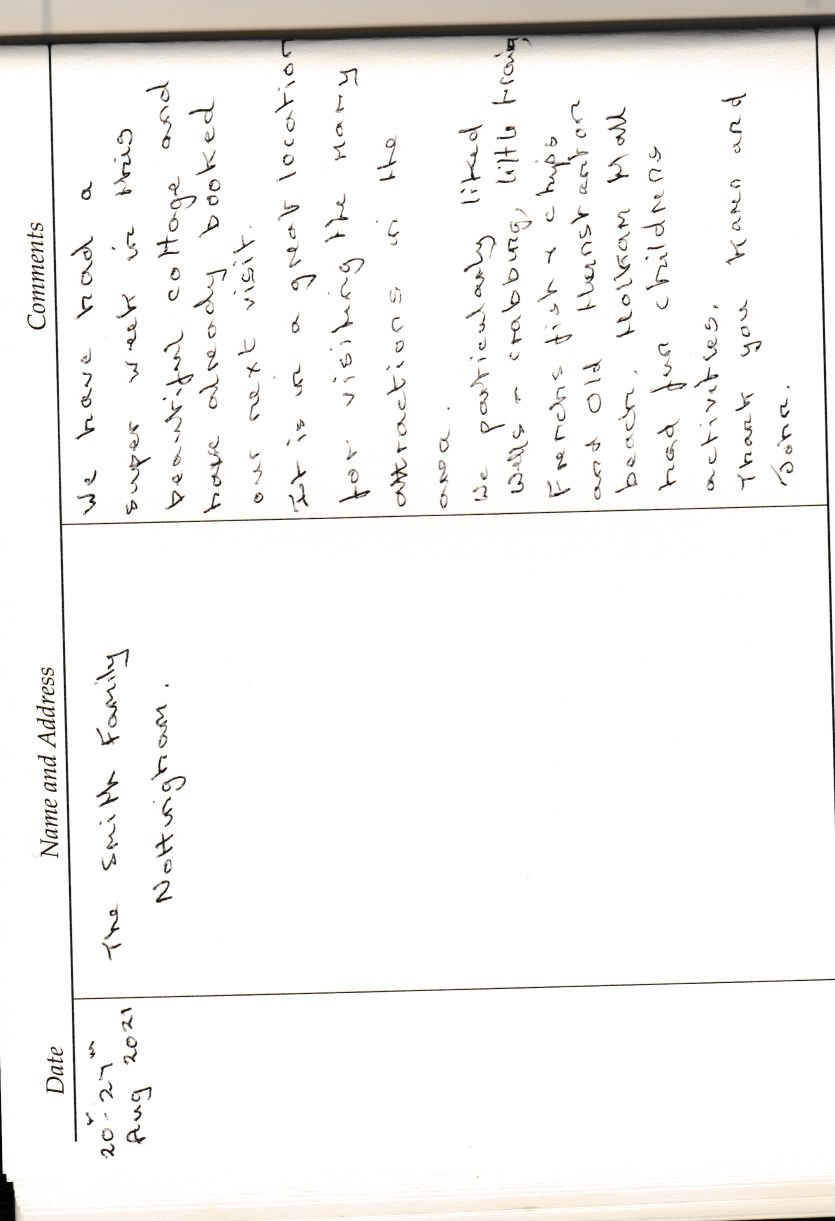 Date
Name and Address
Comments
20th - 27th
Aug 2021
The Smith Family
Nottingham.
We have had a
super week in this
beautiful cottage and
have already booked
our next visit.
It is in a great location
for visiting the many
attractions in the
area.
We particularly liked
Wells - crabbing, little train,
Frenchs fish & chips
and Old Hunstanton
beach. Holkam Hall
had fun childrens
activities.
Thank you Karen and
John.